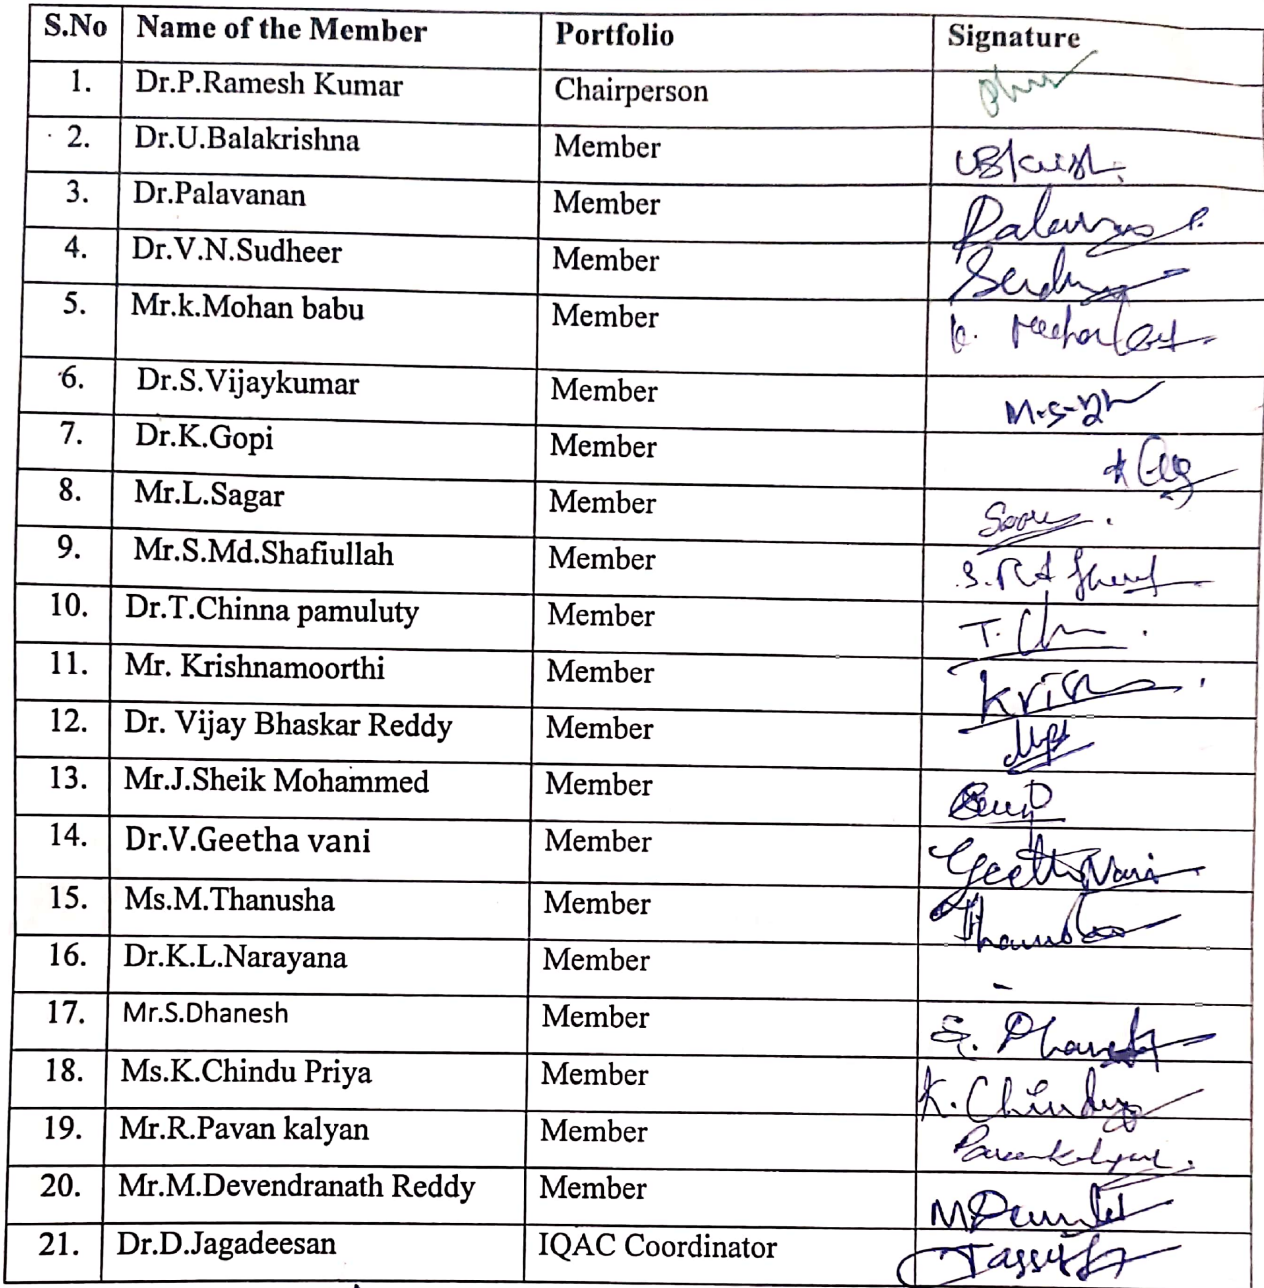 S.No Name of the Member Portfolio Signature
1. Dr.P.Ramesh Kumar Chairperson
2. Dr.U.Balakrishna Member
3. Dr.Palavanan Member
4. Dr.V.N.Sudheer Member
5. Mr.k.Mohan babu Member K.
6. Dr.S.Vijaykumar Member
7. Dr.K.Gopi Member
8. Mr.L.Sagar Member
9. Mr.S.Md.Shafiullah Member
10. Dr.T.Chinna pamuluty Member
11. Mr. Krishnamoorthi Member
12. Dr. Vijay Bhaskar Reddy Member
13. Mr.J.Sheik Mohammed Member
14. Dr.V.Geetha vani Member Geetha Vani
15. Ms.M.Thanusha Member
16. Dr.K.L.Narayana Member -
17. Mr.S.Dhanesh Member S. Dhanesh
18. Ms.K.Chindu Priya Member K. Chindu
19. Mr.R.Pavan kalyan Member Pavankalyan.
20. Mr.M.Devendranath Reddy Member
21. Dr.D.Jagadeesan IQAC Coordinator